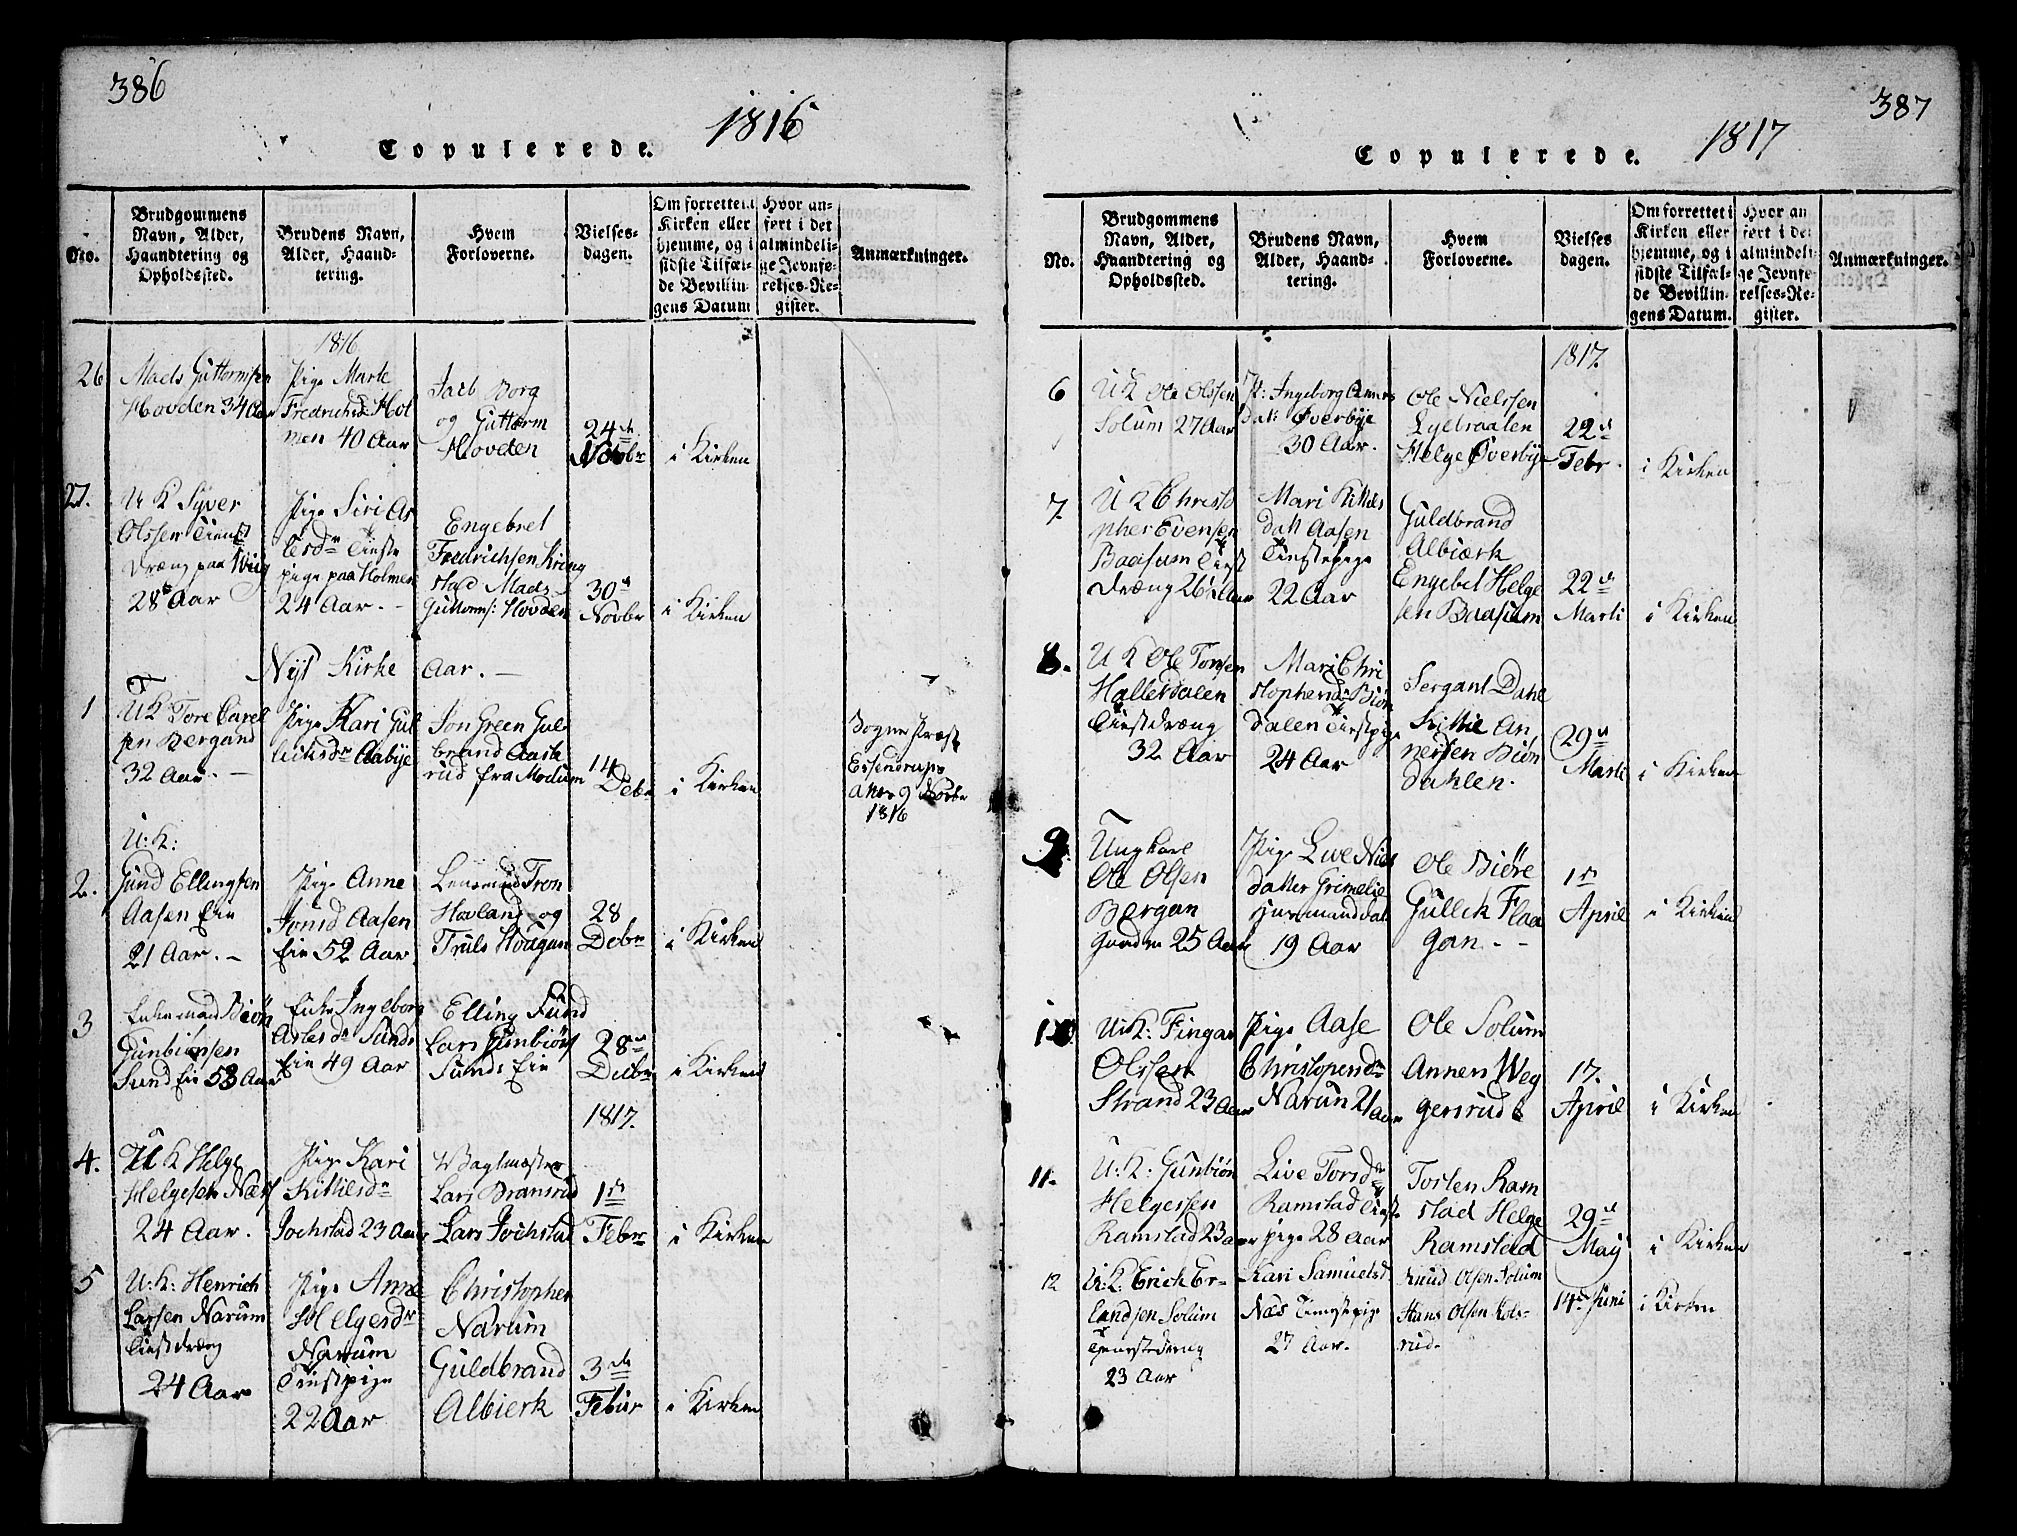 386
Copulerede.
1816
No.
Brudgommens
Navn, Alder,
Haandtering og
Opholdssted.
Brudens Navn,
Alder, Haand-
tering.
Hvem
Forloverne.
Vielses-
dagen.
Om forrettet i
Kirken eller
hjemme, og i
sidste Tilfæl-
de Bevillin-
gens Datum
Hvor an-
ført i det
almindeli-
ge Jevnfø-
relses-Re-
gister.
Anmærkninger.
1816
26
Mads Guttormsen
Hovden 34 Aar
Pige Marte
Fredrichsd Hol
men 40 Aar
Jacb Borg
og Guttorm
Hovden
24de
Novbr
i Kirken
27.
U K Syver
Olssen Tienst
Dræng paa
28 Aar
Pige Siri As
lesdr Tienste
pige paa Holmen
24 Aar. -
Engebret
Fredrichsen Kring
stad Mads
Guttorms: Hovden
30te
Novbr
i Kirken
Nyt Kirke Aar. -
1
UK Tore Carel
sen Bergand
32 Aar. -
Pige Kari Gul
licksdr Aabye
Jon Green Gul
brand Aaste
rud fra Modum
14
Debr
i Kirken
Sogne Præst
Essendrups
9 Novbr
1816
2.
U: K:
Gund Ellingsen
Aasen Eie
21 Aar. -
Pige Anne
Jonsd Aasen
Eie 52 Aar.
Lensmand Tron
Hovland og
Truls Hougan
28
Debr
i Kirken
3
Enkemand Biøn
Gunbiønsen
Sund Eie 53 Aar
Enke Ingeborg
Aslesdr Sunds
Eie 49 Aar
Elling Sund
Lars Gunbiøns
Sunds Eie
28de
Debr
i Kirken
1817.
4.
U K Helge
Helgesen Næss
24 Aar.
Pige Kari
Kittilsdr
Jochstad 23 Aar
Vagtmæster
Lars Bransrud
Lars Jochstad
1ste
Febr
i Kirken
5
U: K: Henrich
Larsen Narum
Tienstdræng
24 Aar
Pige Anne
Helgesdr
Narum
Tienstpige
22 Aar
Christopher
Narum
Guldbrand
Albierk
3de
Febur
i Kirken
387
Copulerede.
1817
No.
Brudgommens
Navn, Alder,
Haandtering og
Opholdssted.
Brudens Navn,
Alder, Haand-
tering.
Hvem
Forloverne.
Vielses
dagen.
Om forrettet i
Kirken eller
hjemme, og i
sidste Tilfæl-
de Bevillin-
gens Datum.
Hvor an
ført i det
almindeli-
ge Jevnfø-
relses-Re-
gister.
Anmærkninger.
1817.
6
U K Ole Olssen
Solum 27 Aar
P: Ingeborg Anners
datt Øverbye
30 Aar.
Ole Nielssen
Helge Øverbye
22de
Febr.
i Kirken
7.
U K Christo
pher Evensen
Baasum Tienst
dræng 26 Aar
Mari Kittels
datt Aasen
Tienstepige
22 Aar
Guldbrand
Albiærk
Engebet Helge
sen Baasum
22de
Marti
i Kirken
8.
U K Ole Torsen
Hallesdalen
Tienstdræng
32 Aar
Mari Chri
stophersd Biøn
dalen Tienstpige
24 Aar
Sergant Dahl
Kittil An
nersen Biøn
dahlen.
29de
Marti
i Kirken
9.
Ungkarl
Ole Olsen
Bergan
25 Aar
Pige Live Niels
datter Grimelie
19 Aar
Ole Biøre
Gullik Flaa
gan. - -
1ste
April
i Kirken
10
U:K: Fingar
Olssen
Strand 23 Aar
Pige Aase
Christopendr
Narun 21 Aar
Ole Solum
Annen Weg
gersrud
17.
April
i Kirken
11.
U: K: Gunbiøn
Helgessen
Ramstad 23 Aar
Live Torsdr
Ramstad Tienste
pige 28 Aar
Tosten Ram
stad Helge
Ramstad
29de
May
i Kirken
12
U:K: Erich Er-
landsen Solum
Tienestedreng
23 Aar
Kari Samuelsd.
Næs Tienestepige
27 Aar.
Knud Olsen Solum
Hans Olsen Kols-
rud.
14de Juni
i Kirken